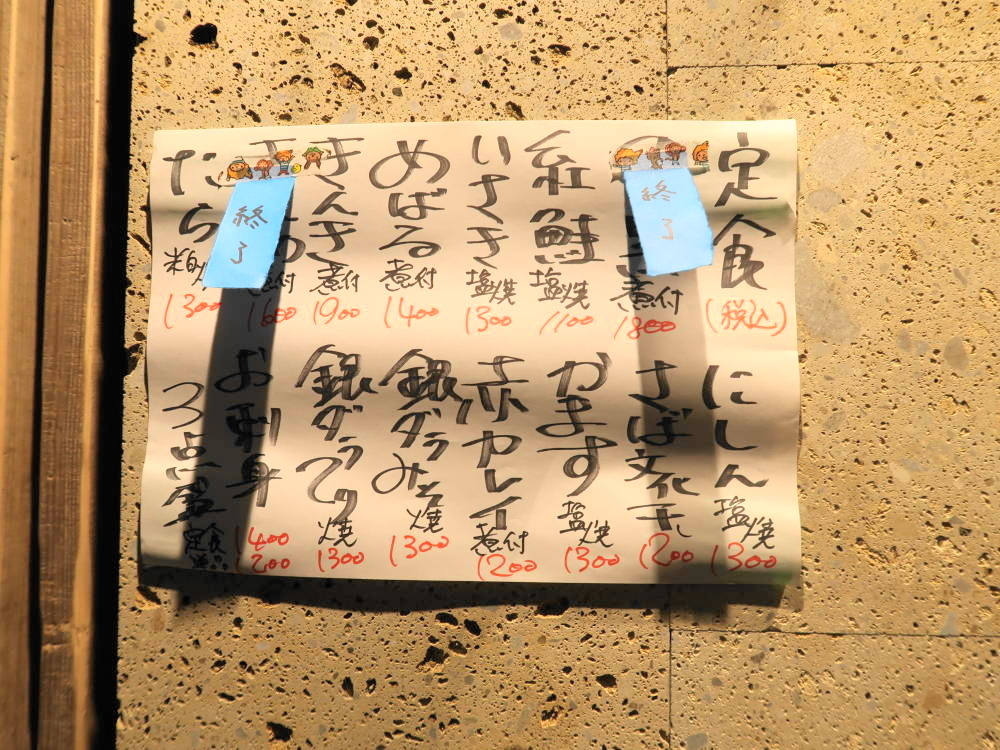 定食(税込)
終了
煮付 1800
紅鮭 塩焼 1100
いさき 塩焼 1300
めばる 煮付 1400
きんき 煮付 1900
終了
煮付 1600
たら 粕 1300
にしん 塩焼 1300
さば文化干し 1200
かます 塩焼 1300
赤カレイ 煮付 1200
銀ダラみそ焼 1300
銀ダラてり焼 1300
お刺身 1400
1200
3点盛 定食